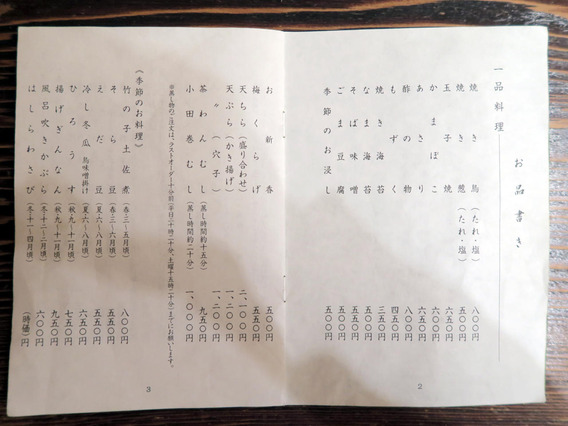 お品書き
一品料理
焼き鳥(たれ・塩) 八〇〇円
焼き葱(たれ・塩) 五〇〇円
玉子焼 六五〇円
かまぼこ 六〇〇円
あさり 六五〇円
酢の物 八〇〇円
もずく 四五〇円
焼き海苔 三五〇円
なま海苔 五〇〇円
そば味噌 五〇〇円
ごま豆腐 五五〇円
季節のお浸し 五〇〇円
2
お新香 五〇〇円
梅くらげ 五五〇円
天ちら(盛り合わせ) 二、一〇〇円
天ぷら(かき揚げ) 一、二〇〇円
〃(穴子) 一、二〇〇円
茶わんむし(蒸し時間約十五分) 九五〇円
小田巻むし(蒸し時間約二十分) 一、〇〇〇円
※蒸し物のご注文は、ラストオーダー十分前(平日二十時二十分、土曜十五時二十分)までにお願いします。
《季節のお料理》
竹の子土佐煮(春三~五月頃) 八〇〇円
そら豆(春三~六月頃) 五五〇円
えだ豆(夏六~八月頃) 五五〇円
冷し冬瓜 鳥味噌掛け(夏六~八月頃) 六五〇円
ひろうす(秋九~十一月頃) 七五〇円
揚げぎんなん(秋九~十一月頃) 九五〇円
風呂吹きかぶら(冬十二~二月頃) 六〇〇円
はしらわさび(冬十一~四月頃) (時価)円
3